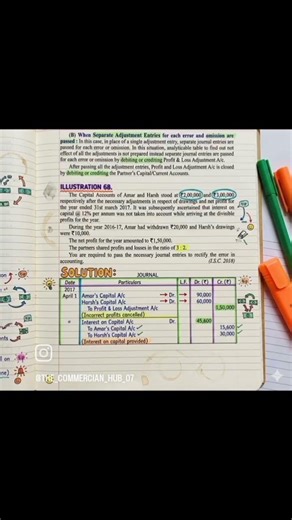 (B) When Separate Adjustment Entries for each error and omission are
passed : In this case, in place of a single adjustment entry, separate journal entries are
passed for each error or omission. In this situation, analyticable table to find out net
effect of all the adjustments is not prepared instead separate journal entries are passed
for each error or omission by debiting or crediting Profit & Loss Adjustment A/c.
After passing all the adjustment entries, Profit and Loss Adjustment A/c is closed
by debiting or crediting the Partner's Capital/Current Accounts.
ILLUSTRATION 68.
The Capital Accounts of Amar and Harsh stood at ₹2,00,000 and ₹3,00,000
respectively after the necessary adjustments in respect of drawings and net profit for
the year ended 31st march 2017. It was subsequently ascertained that interest on
capital @ 12% per annum was not taken into account while arriving at the divisible
profits for the year.
During the year 2016-17, Amar had withdrawn ₹20,000 and Harsh's drawings
were ₹10,000.
The net profit for the year amounted to ₹1,50,000.
The partners shared profits and losses in the ratio of 3 : 2.
You are required to pass the necessary journal entries to rectify the error in
accounting. (I.S.C 2018)
SOLUTION: JOURNAL
Date Particulars L.F. Dr. (₹) Cr. (₹)
2017
April 1 Amar's Capital A/c Dr. 90,000
Harsh's Capital A/c Dr. 60,000
To Profit & Loss Adjustment A/c 1,50,000
(Incorrect profits cancelled)
" Interest on Capital A/c Dr. 45,600
To Amar's Capital A/c 15,600
To Harsh's Capital A/c 30,000
(Interest on capital provided)
@THE_COMMERCIAN_HUB_07